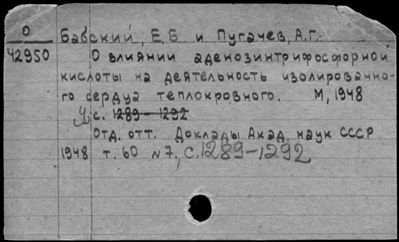 О Бабский, Е.Б и Пугачев, А.Г.
42950 О влиянии аденозинтрифосфорной
кислоты на деятельность изолированно-
го сердца теплокровного. М, 1948
4 с. 1289-1292
Отд. отт. Доклады Акад. наук СССР
1948 т. 60 №7, С. 1289-1292